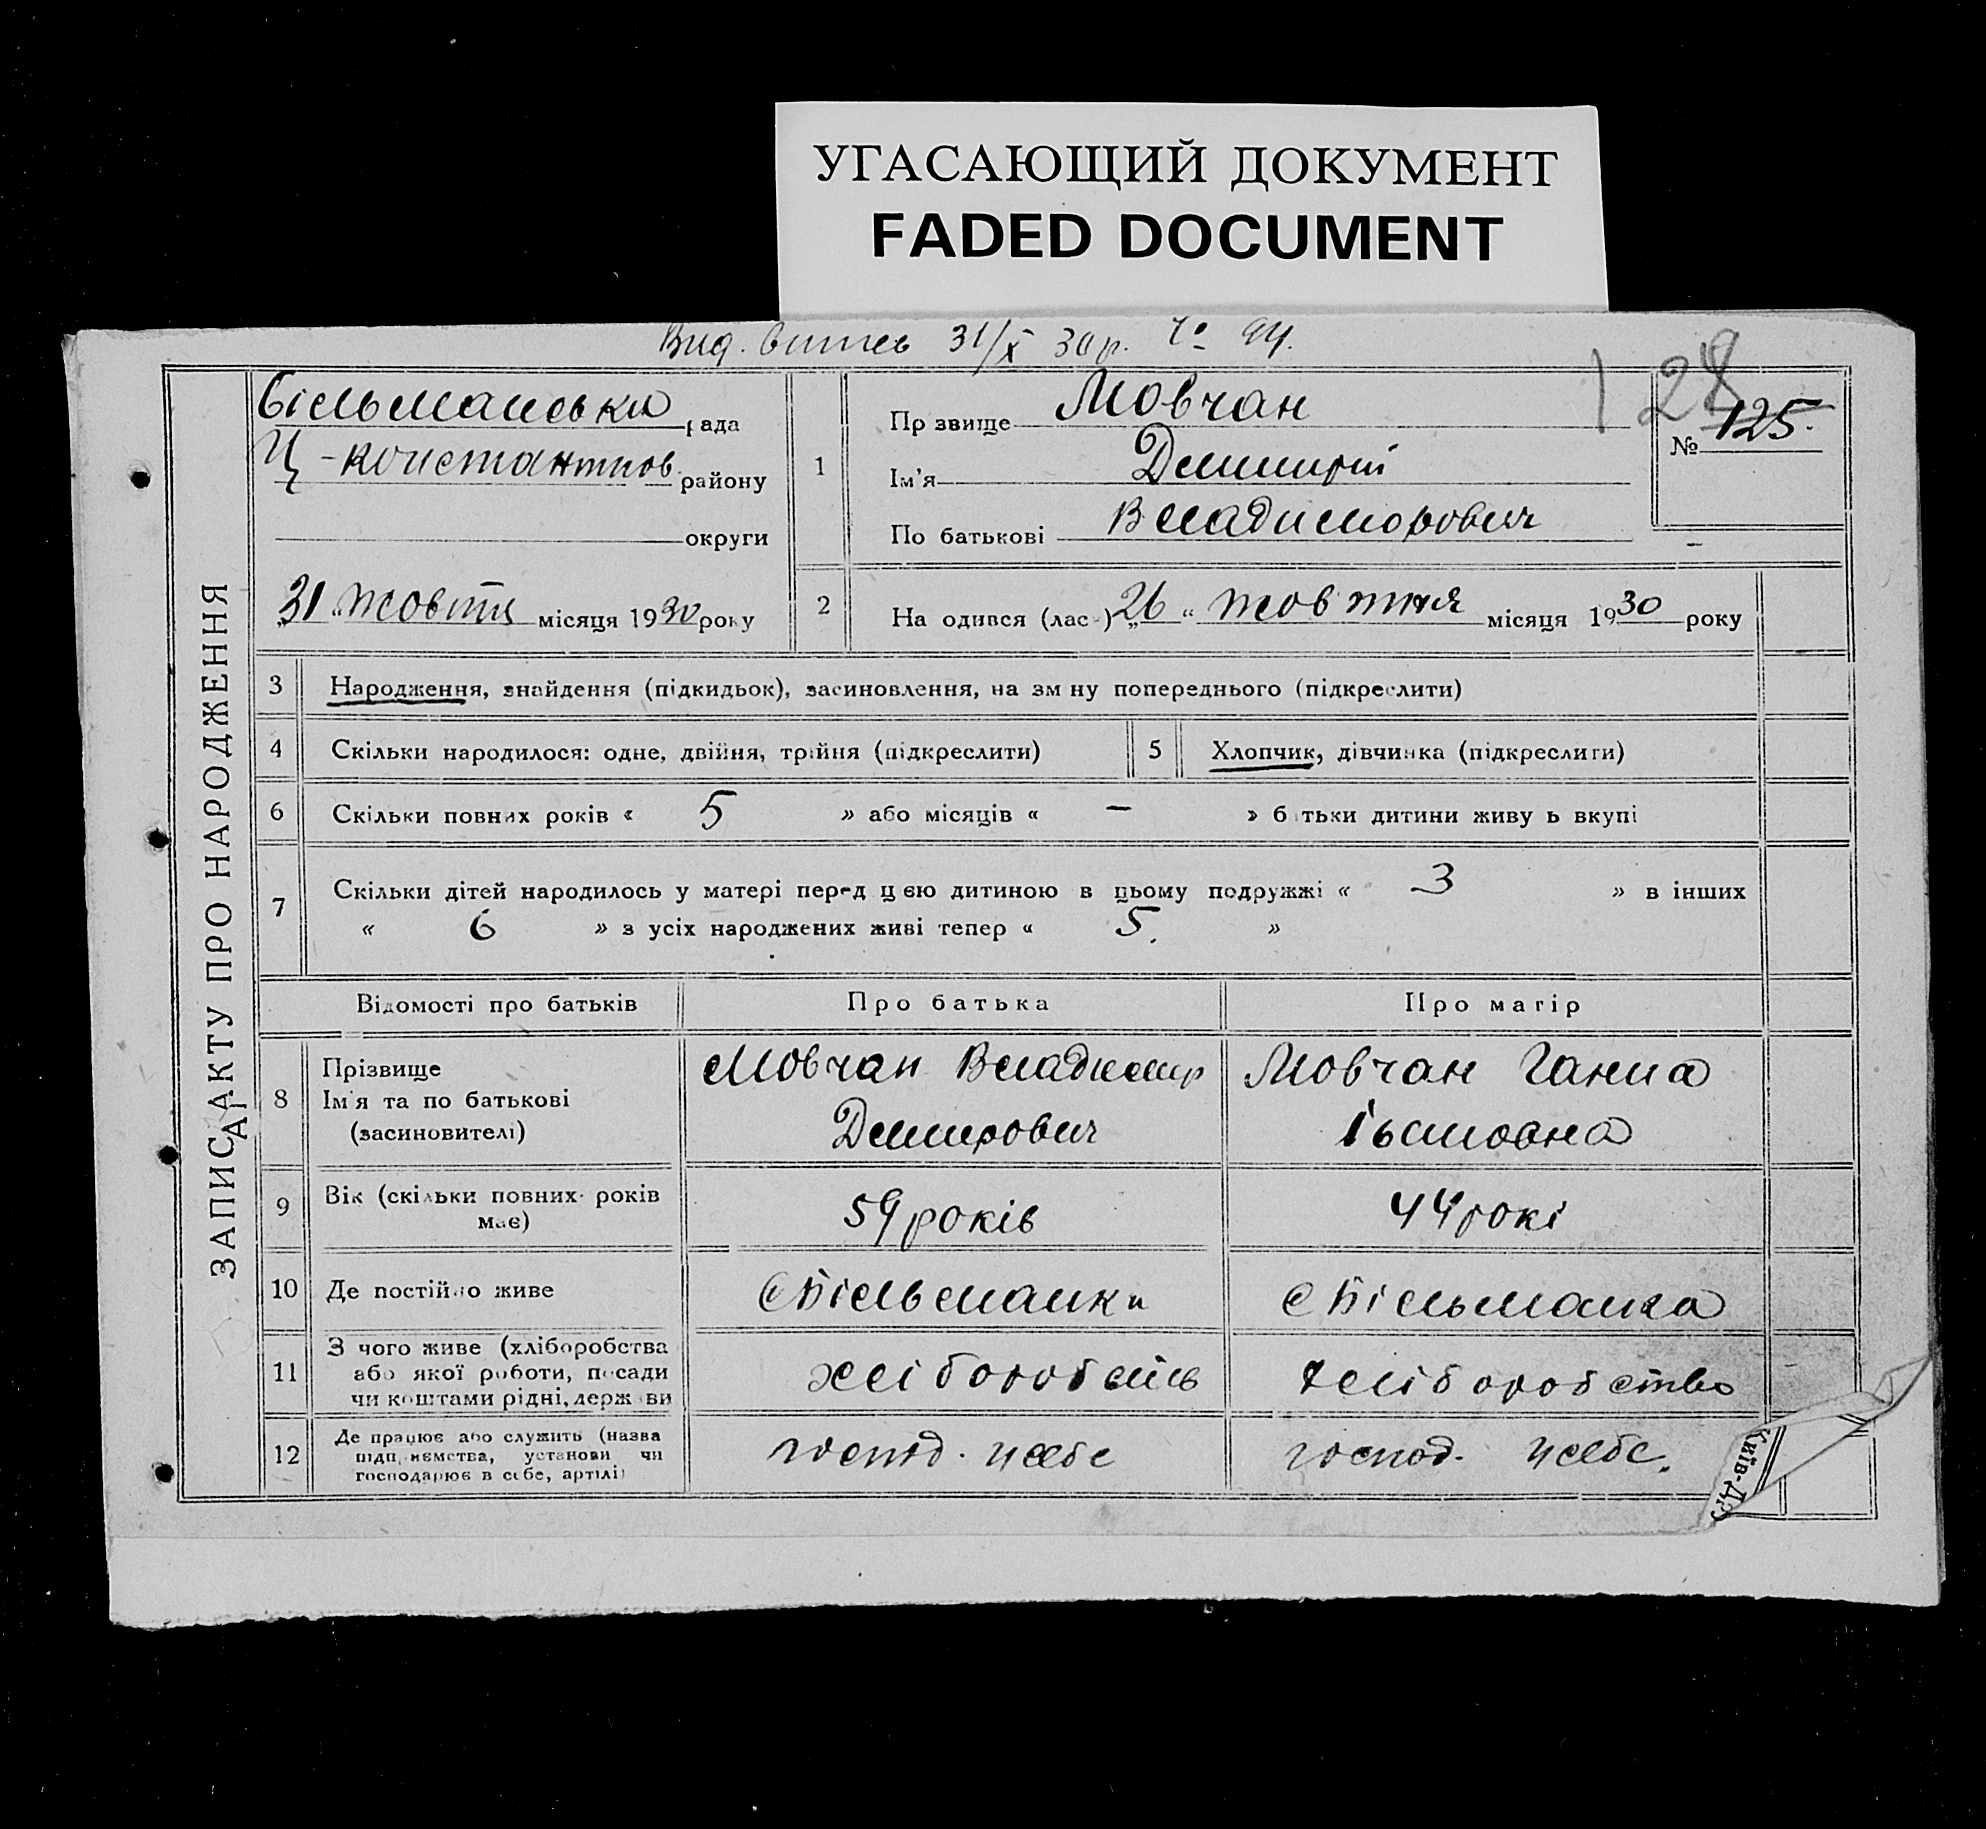 УГАСАЮЩИЙ ДОКУМЕНТ
FADED DOCUMENT
Вид. витяг 31/X 30 р. № 94.
128
№ 125.
Більманська рада
Ц-Константинов. району
округи
31 жовтня місяця 1930 року
ЗАПИС АКТУ ПРО НАРОДЖЕННЯ
1
Пр звище Мовчан
Ім'я Демитрій
По батькові Владимирович
2 На одився (лась) „26“ жовтня місяця 1930 року
3 Народження, знайдення (підкидьок), засиновлення, на зм ну попереднього (підкреслити)
4 Скільки народилося: одне, двійня, трійня (підкреслити)
5 Хлопчик, дівчинка (підкреслити)
6 Скільки повних років « 5 » або місяців « — » б тьки дитини живу ь вкупі
7 Скільки дітей народилось у матері перед цією дитиною в цьому подружжі « 3 » в інших
« 6 » з усіх народжених живі тепер « 5. »
Відомості про батьків Про батька Про матір
8 Прізвище
Ім'я та по батькові
(засиновителі)
Мовчан Владимир
Демирович
Мовчан Ганна
9 Вік (скільки повних років
має)
59 років
44 рокі
10 Де постійно живе
с Більманки
с Більманка
11 З чого живе (хліборобства
або якої роботи, посади
чи коштами рідні, держ ви
хліборобство
12 Де працює або служить (назва
підприємства, установи чи
господарює в себе, артілі)
господ. у себе
господ. у себе.
Київ-Др